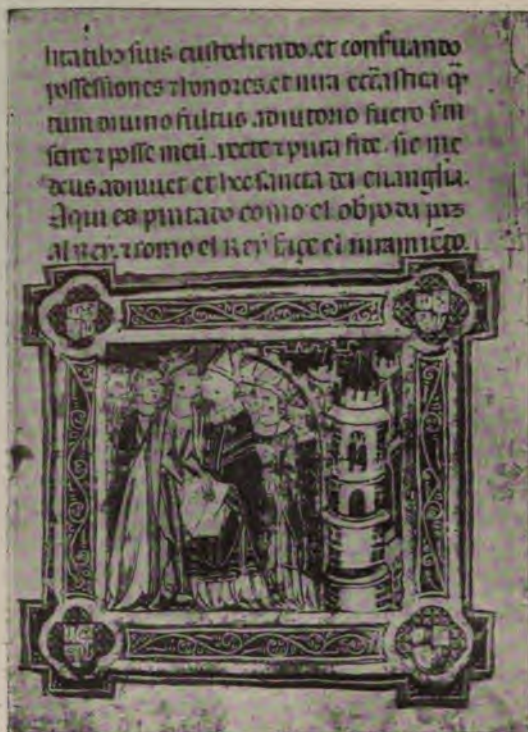 litatibȝ suis custodiendo. et conseruando
possessiones ⁊ honores. et iura eccͣastica q̃
tum diuino fultus adiutorio fuero s̃m
scire ⁊ posse meũ. recte ⁊ pura fide. sic me
deus adiuuet et hec sancta dei euanglia.
Aqui es pintado como el obpo da pȝ
al Rey. ⁊ como el Rey façe el iuramẽto.